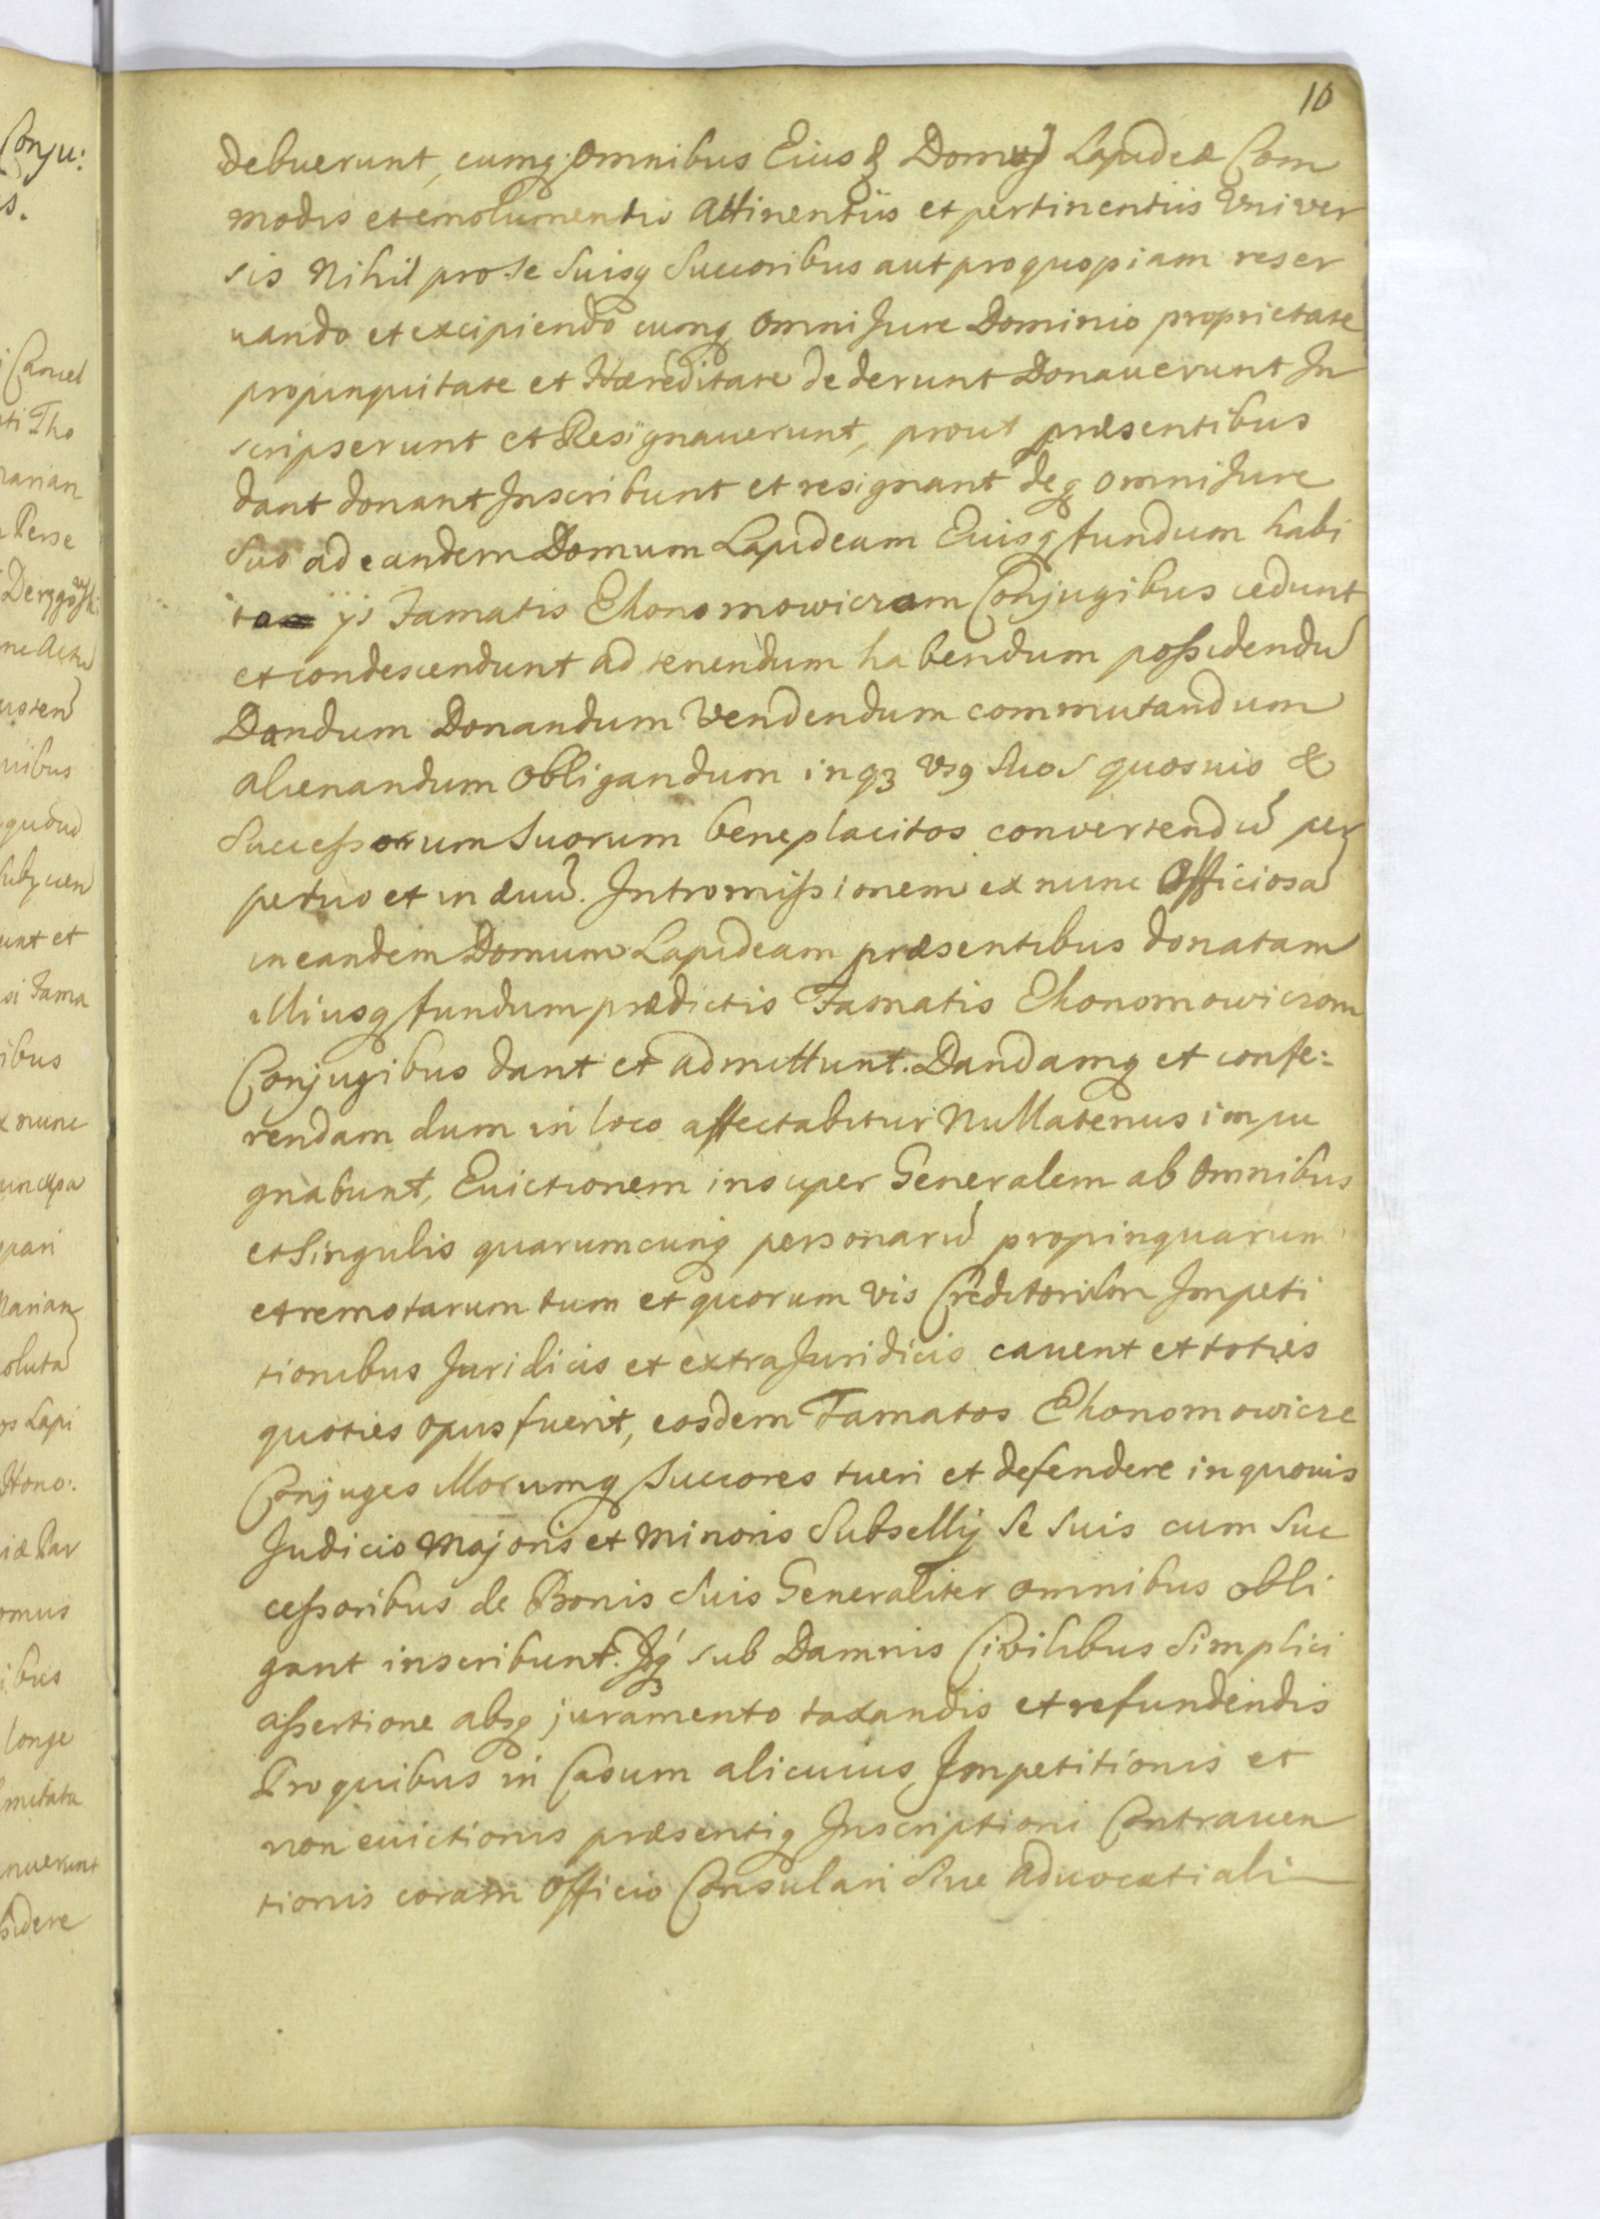 10
debuerunt, cumq; omnibus Eiusd Domus Lapideæ Com
modis et emolumentis Attinentiis et pertinentiis Univer
sis Nihil pro se Suisq Succoribus aut pro quopiam reser
uando et excipiendo cumq omni Jure Dominio proprietate
propinquitate et Hæreditate dederunt Donauerunt In
scripserunt et Resignauerunt, prout præsentibus
dant donant Inscribunt et resignant deq omni Jure
Suo ad eandem Domum Lapideam Eiusq fundum habi
to ijs Famatis Ekonomowiczom Conjugibus cedunt
et condescendunt ad tenendum habendum possidendũ
Dandum Donandum Vendendum commutandum
alienandum obligandum inq3 vs9 Suos quosuis &
Successorum Suorum beneplacitos convertendũ per
petuo et in æuũ. Intromissionem ex nunc Officiosã
in eandem Domum Lapideam præsentibus donatam
Illiusq fundum prædictis Famatis Ekonomowiczom
Conjugibus dant et admittunt. Dandamq et confe:
rendam dum in loco affectabitur Nullatenus impu
gnabunt, Euictionem insuper Generalem ab omnibus
et Singulis quarumcunq personarũ propinquarum
et remotarum tum et quorum vis Creditorum Impeti
tionibus Juridicis et extra Juridicis cauent et toties
quoties opus fuerit, eosdem Famatos Ekonomowicze
Conjuges Illorumq Succores tueri et defendere in quouis
Judicio Majoris et Minoris Subsellij Se Suis cum Suc
cessoribus de Bonis Suis Generaliter omnibus obli
gant inscribunt. Idq sub Damnis Civilibus Simplici
assertione absq juramento taxandis et refundendis
Pro quibus in Casum alicuius Impetitionis et
non euictionis præsentiq Inscriptioni Contrauen
tionis coram Officio Consulari Siue Aduocatiali